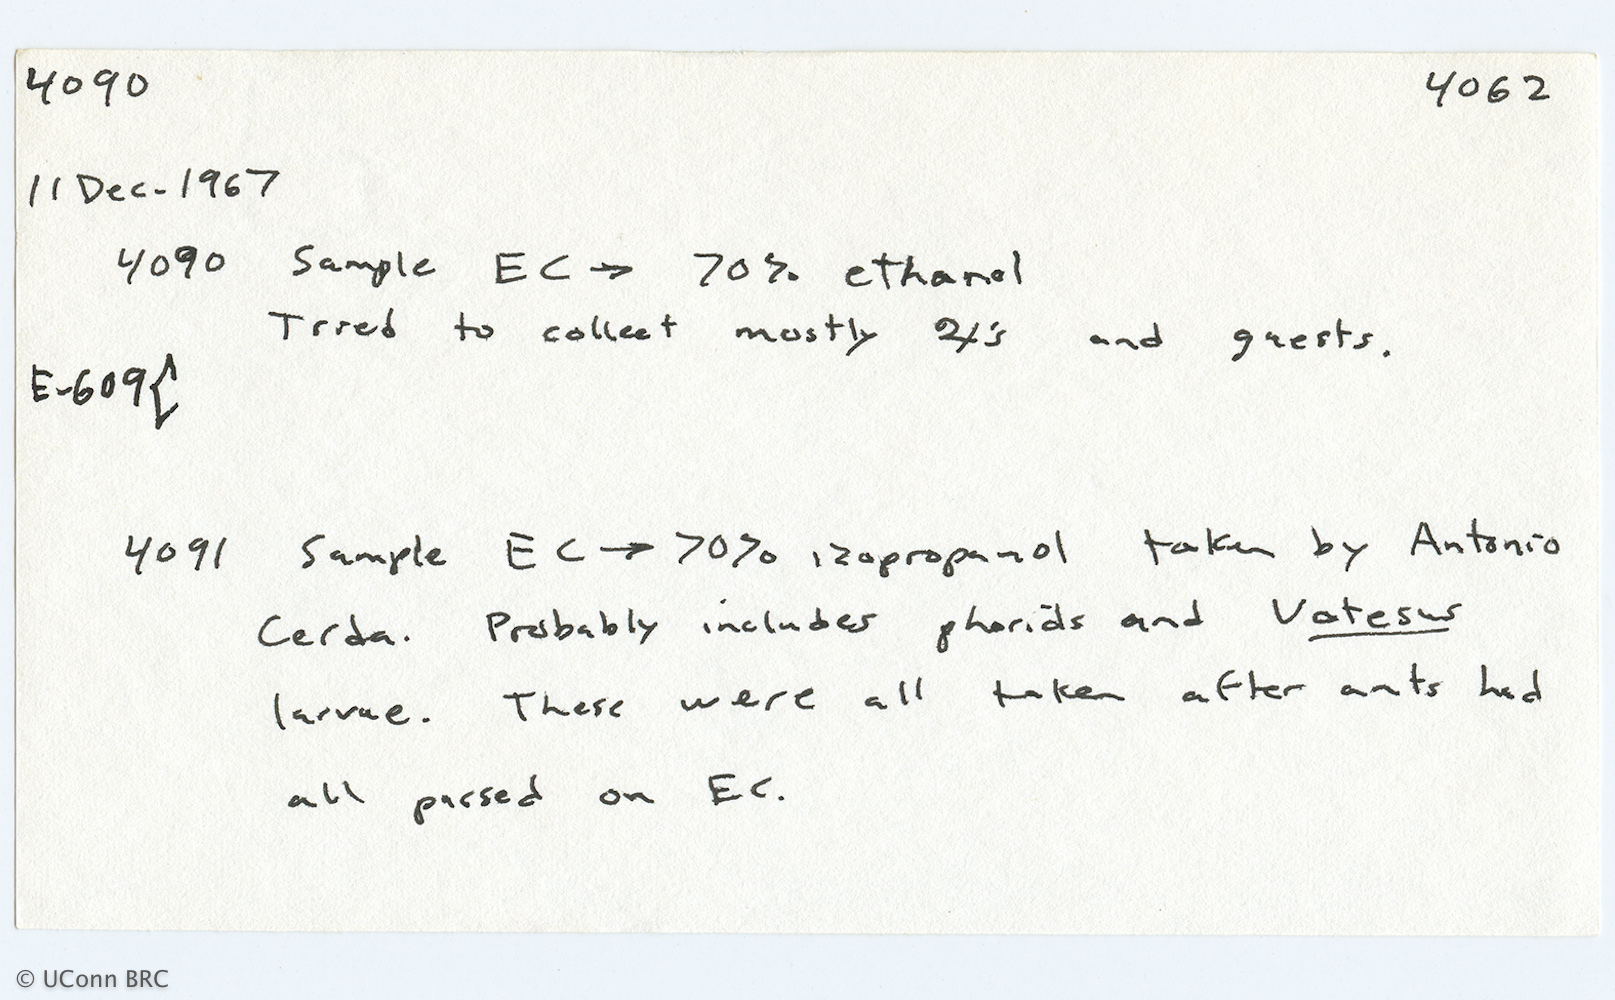 4090 4062
11 Dec-1967
4090 Sample EC → 70% ethanol
Tried to collect mostly and guests.
E-609{
4091 Sample EC → 70% izopropanol taken by Antonio
Cerda. Probably includes phorids and Vatesus
larvae. These were all taken after ants had
all passed on EC.
© UConn BRC